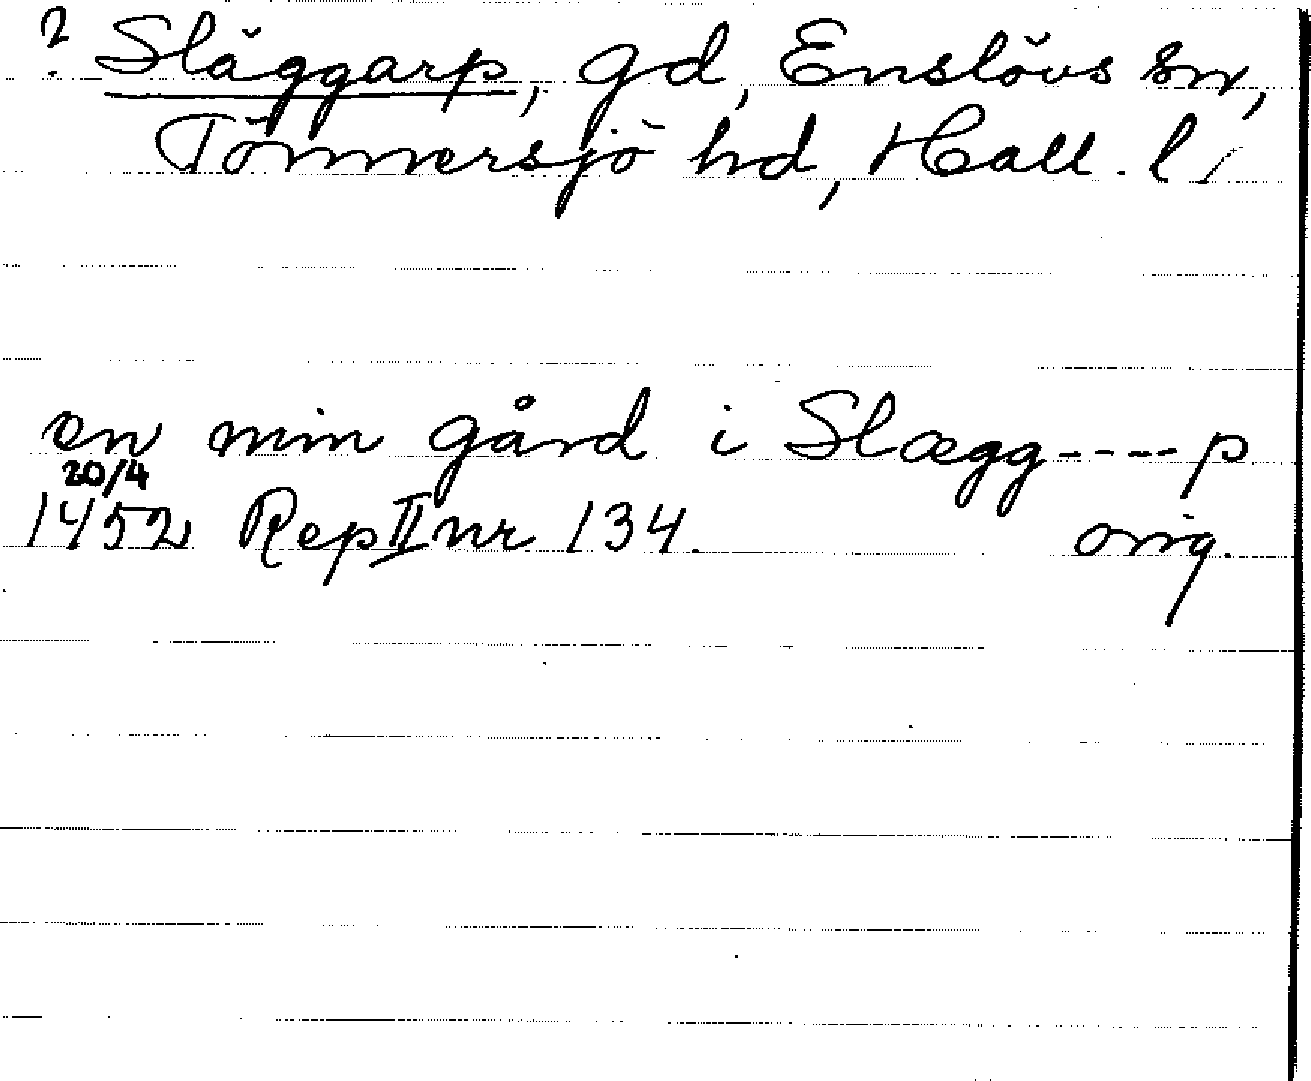 ? Släggarp, gd, Enslövs sn,
Tönnersjö hd, Hall. l
en min gård i Slægg----p
20/4
1452 Rep II nr 134. orig.